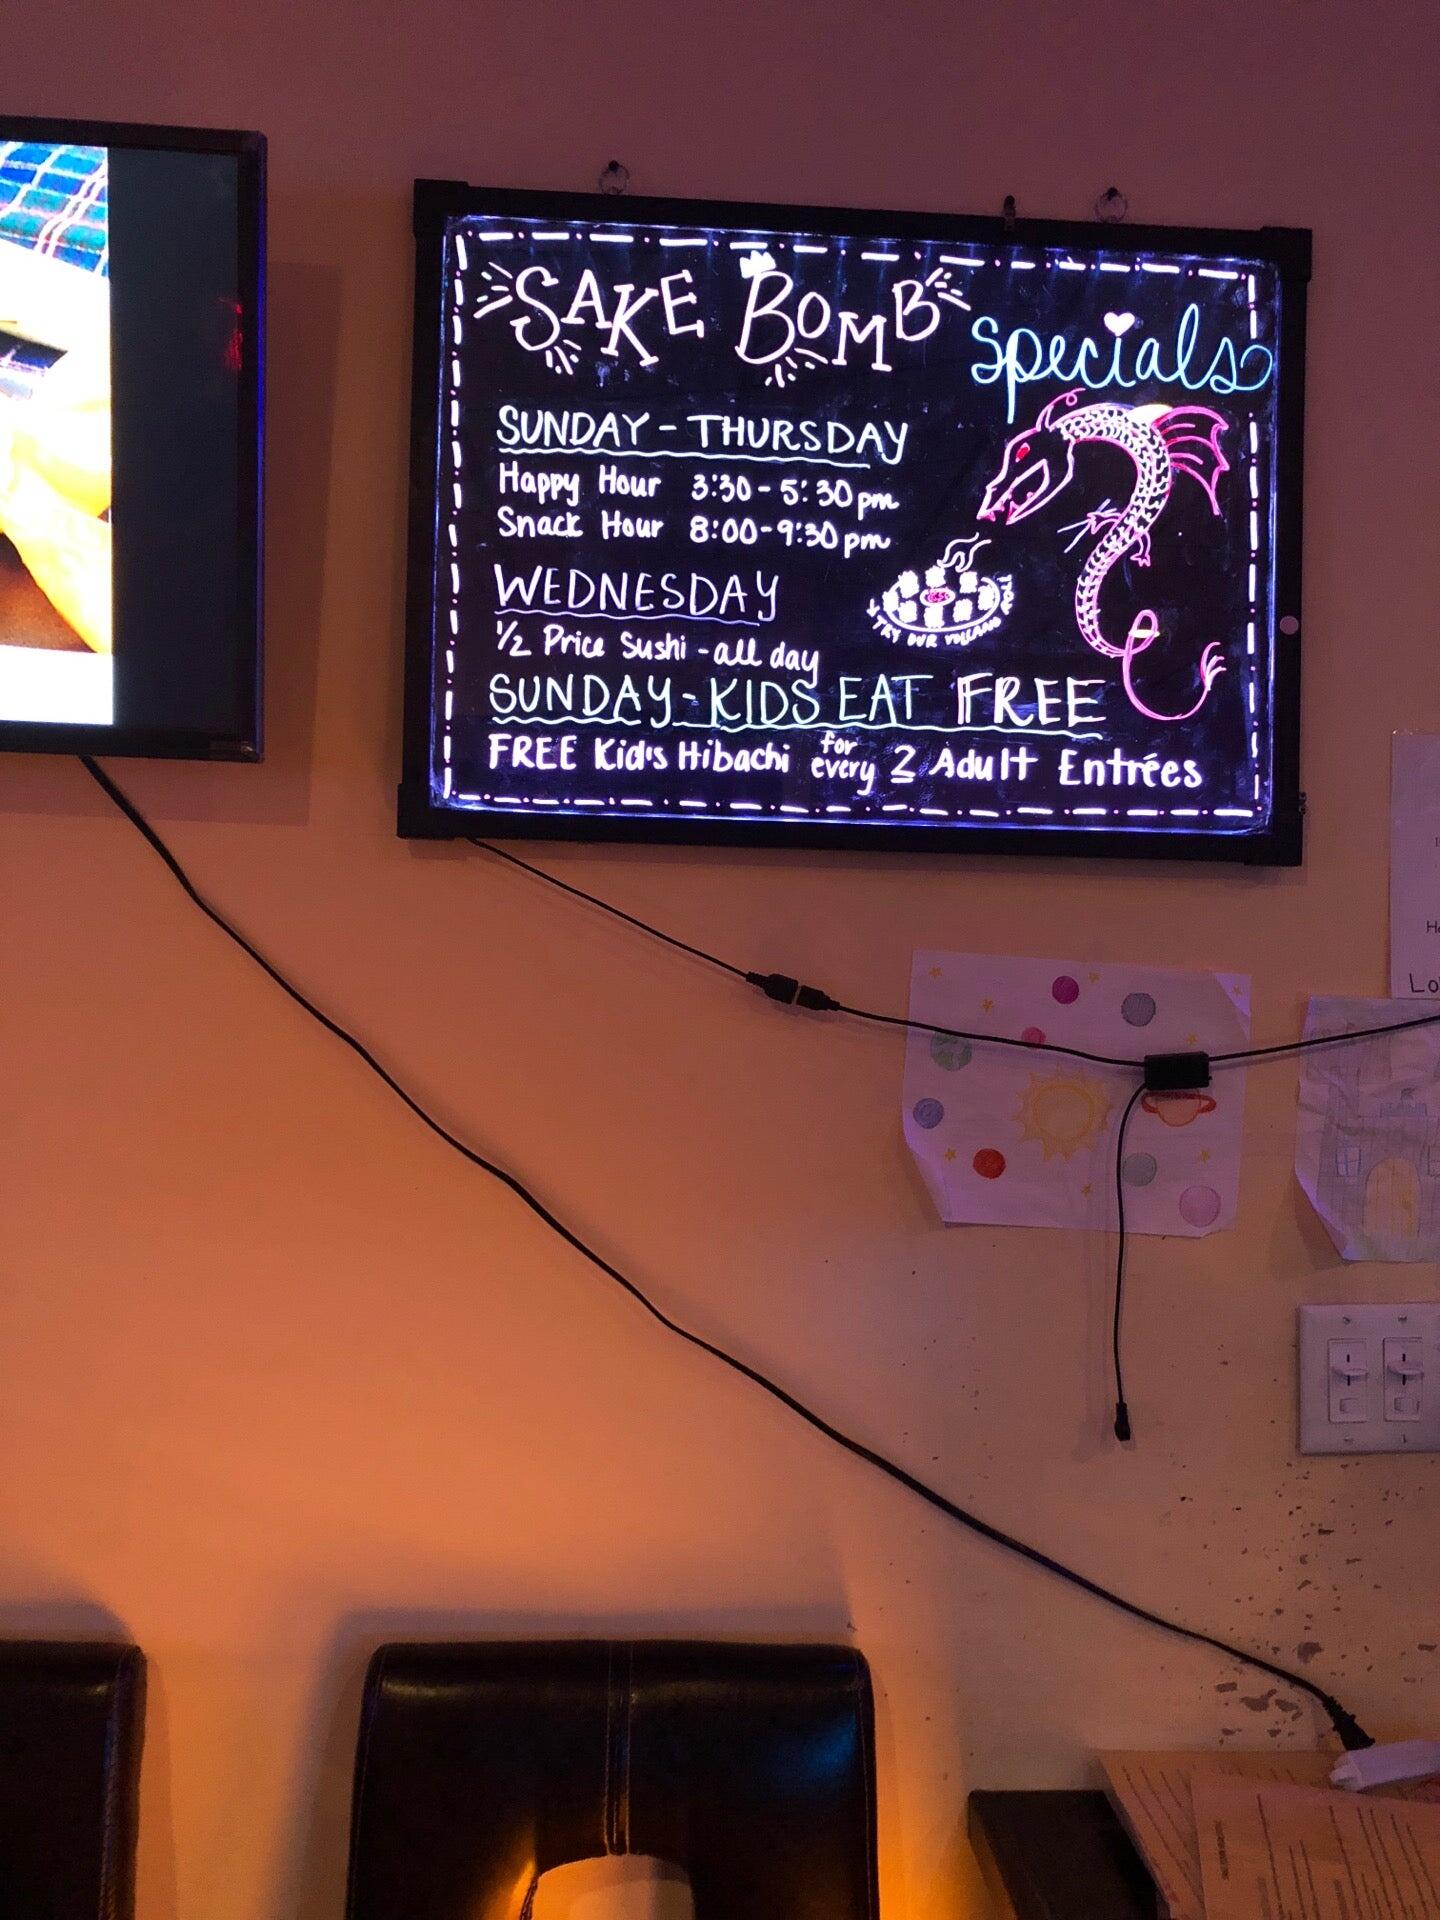 SAKE BOMB
specials
SUNDAY - THURSDAY
Happy Hour 3:30 - 5:30 pm
Snack Hour 8:00 - 9:30 pm
WEDNESDAY
1/2 Price Sushi - all day
TRY OUR VOLCANO
SUNDAY - KIDS EAT FREE
FREE Kid's Hibachi for every 2 Adult Entrées
Lo